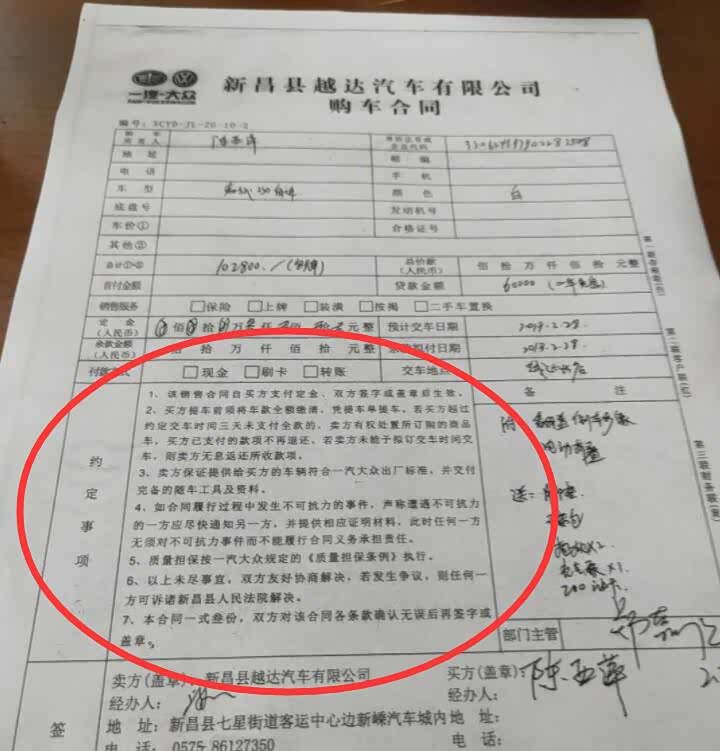 一汽-大众
新昌县越达汽车有限公司
购车合同
编号：XCYD-JL-20-10-2
地址 邮编
电话 手机
车型 颜色 白
底盘号 发动机号
车价① 合格证号
其他②
合计①+② 102800. 总价款（人民币） 佰 拾 万 仟 佰 拾 元整
首付金额 贷款金额 60000
销售服务 □保险 □上牌 □装潢 □按揭 □二手车置换
定金（人民币） 佰 拾 万 仟 佰 元整 预计交车日期
余款金额（人民币） 佰 拾 万 仟 佰 拾 元整
付款方式 □现金 □刷卡 □转账 交车地点
约定事项
1、该销售合同自买方支付定金、双方签字或盖章后生效。
2、买方提车前须将车款全额缴清，凭提车单提车。若买方超过
约定交车时间三天未支付全款的，卖方有权处置所订购的商品
车，买方已支付的款项不再退还，若卖方未能予拟订交车时间交
车，则卖方无息返还所收款项。
3、卖方保证提供给买方的车辆符合一汽大众出厂标准，并交付
完备的随车工具及资料。
4、如合同履行过程中发生不可抗力的事件，声称遭遇不可抗力
的一方应尽快通知另一方，并提供相应证明材料，此时任何一方
无须对不可抗力事件而不能履行合同义务承担责任。
5、质量担保按一汽大众规定的《质量担保条例》执行。
6、以上未尽事宜，双方友好协商解决，若发生争议，则任何一
方可诉诸新昌县人民法院解决。
7、本合同一式叁份，双方对该合同各条款确认无误后再签字或
盖章。
备注
部门主管
第三联财务联(红)
卖方(盖章)：新昌县越达汽车有限公司 买方(盖章)：陈亚萍
经办人： 经办人：
签
地 址：新昌县七星街道客运中心边新嵊汽车城内 地 址：
电 话：0575-86127350 电 话：